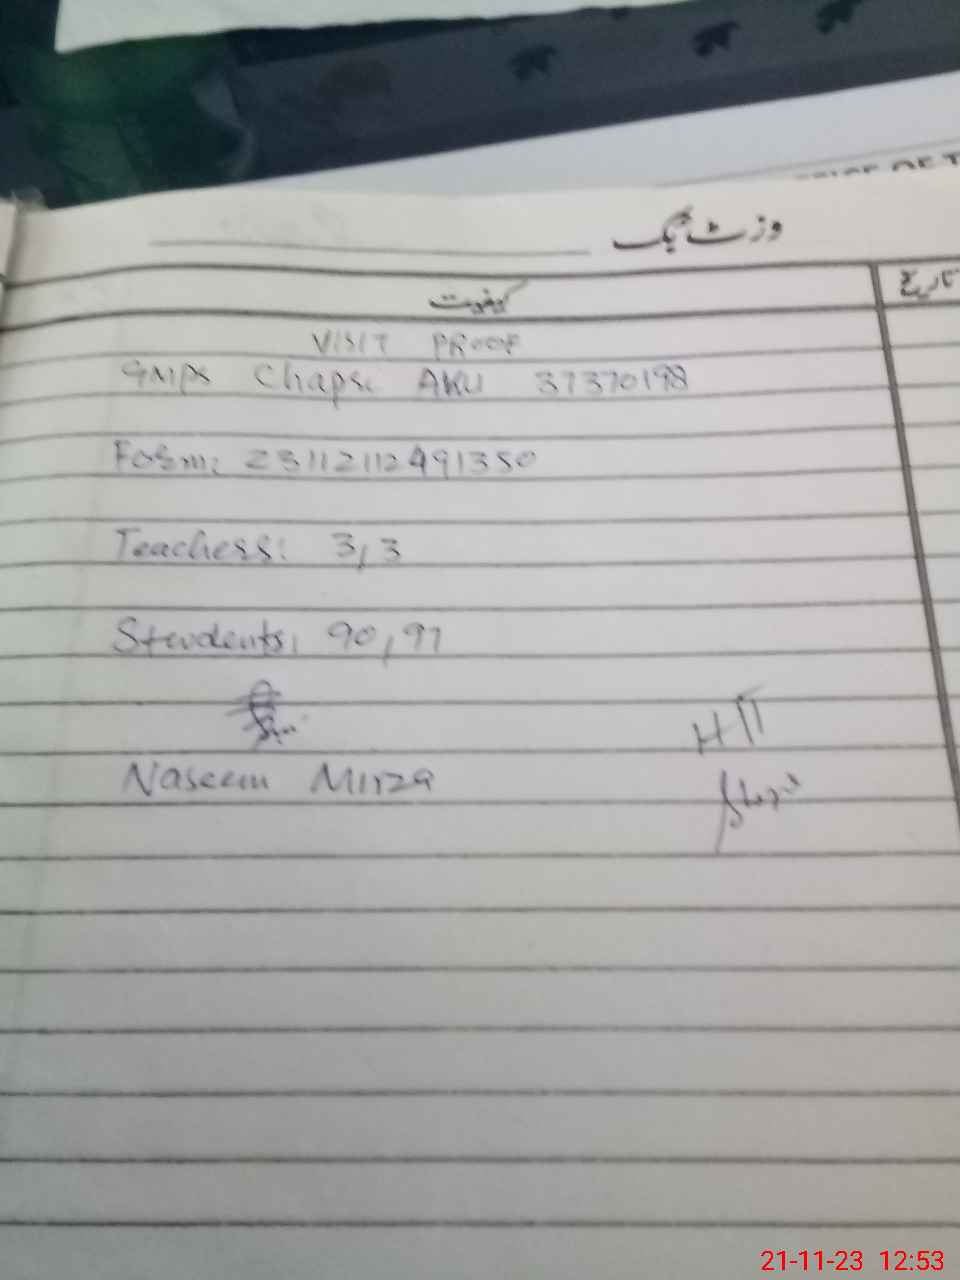 وزٹ بک
کیفیت
تاریخ
VISIT PROOF
GMPS Chapsi AKU 37370198
Form: 23112112491350
Teachers: 3,3
Students, 90,97
HT
Naseem Mirza
21-11-23 12:53